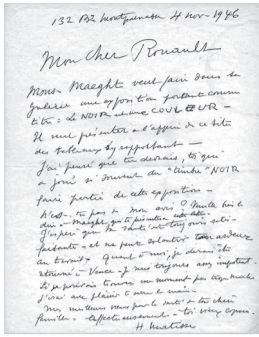 132 Bd Montparnasse 4 nov. 1946
Mon cher Rouault
Mons. Maeght veut faire dans sa
Galerie une exposition portant comme
titre : Le NOIR est une COULEUR -
Il veut présenter à l'appui de ce titre
des tableaux s'y rapportant -
J'ai pensé que tu devrais, toi qui
a joué si souvent du "timbre" NOIR
faire partie de cette exposition -
N'est-tu pas de mon avis ?
dire à Maeght
J'espère que ta santé est toujours satis-
faisante - et ne peut ton ardeur
au travail. Quant à moi, je
à Vence - toujours
Si je pouvais trouver un moment pas trop
j'irai avec plaisir te serrer la main -
Mes meilleurs vœux pour la santé de ta chère
famille - affectueusement à toi vieux copain.
H Matisse